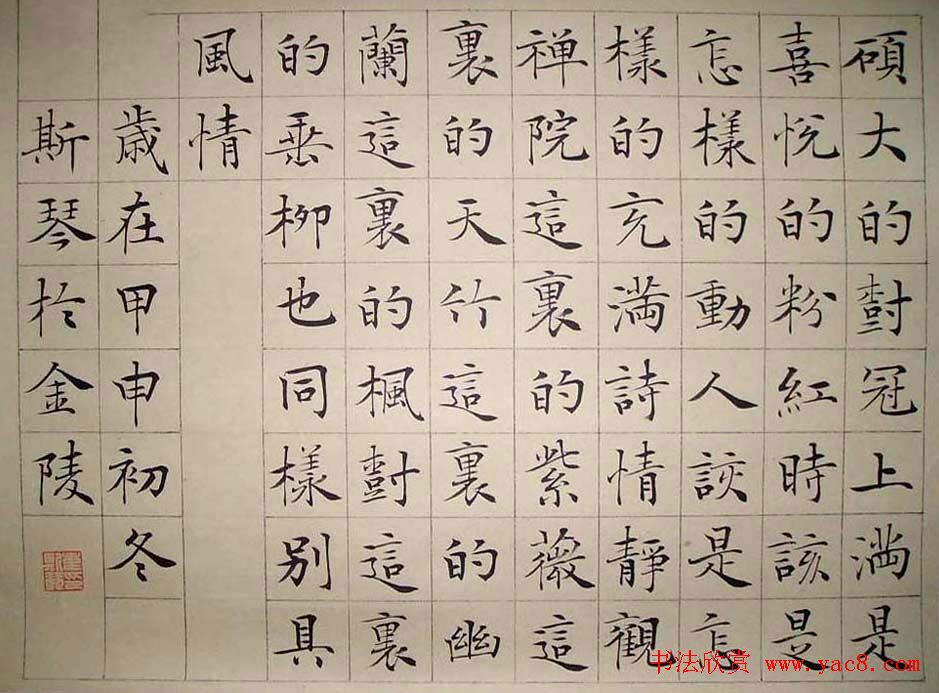 碩大的樹冠上滿是
喜悅的粉紅時該是
怎樣的動人該是怎
樣的充滿詩情靜觀
禅院這裏的紫薇這
裏的天竹這裏的幽
蘭這裏的楓樹這裏
的垂柳也同樣别具
風情
歲在甲申初冬
斯琴於金陵
书法欣赏 www.yac8.com